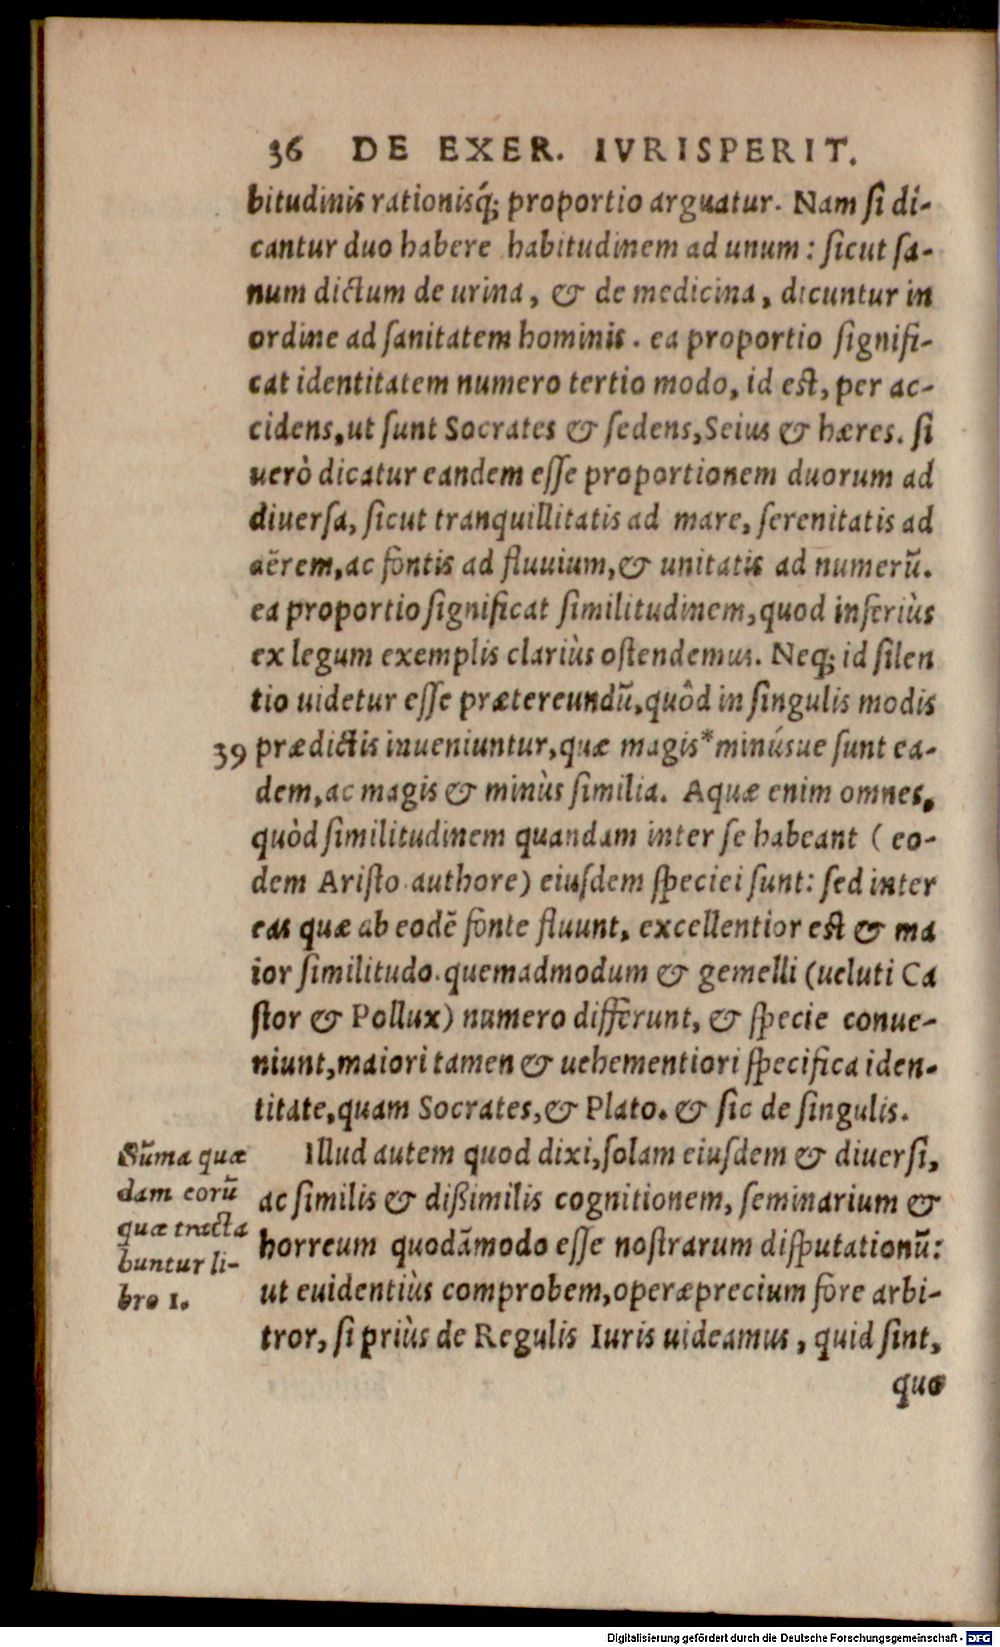 36 DE EXER. IVRISPERIT.
bitudinis rationisq́; proportio arguatur. Nam ſi di-
cantur duo habere habitudinem ad unum: ſicut ſa-
num dictum de urina, & de medicina, dicuntur in
ordine ad ſanitatem hominis. ea proportio ſignifi-
cat identitatem numero tertio modo, id eſt, per ac-
cidens, ut ſunt Socrates & ſedens, Seius & hæres. ſi
uerò dicatur eandem eſſe proportionem duorum ad
diuerſa, ſicut tranquillitatis ad mare, ſerenitatis ad
aërem, ac fontis ad fluuium, & unitatis ad numerũ.
ea proportio ſignificat ſimilitudinem, quod inferiùs
ex legum exemplis clariùs oſtendemus. Neq; id ſilen
tio uidetur eſſe prætereundũ, quòd in ſingulis modis
39 prædictis inueniuntur, quæ magis*minúsue ſunt ea-
dem, ac magis & minùs ſimilia. Aquæ enim omnes,
quòd ſimilitudinem quandam inter ſe habeant (eo-
dem Ariſto. authore) eiuſdem ſpeciei ſunt: ſed inter
eas quæ ab eodẽ fonte fluunt, excellentior eſt & ma
ior ſimilitudo. quemadmodum & gemelli (ueluti Ca
ſtor & Pollux) numero differunt, & ſpecie conue-
niunt, maiori tamen & uehementiori ſpecifica iden-
titate, quam Socrates, & Plato. & ſic de ſingulis.
Illud autem quod dixi, ſolam eiuſdem & diuerſi,
ac ſimilis & dißimilis cognitionem, ſeminarium &
horreum quodãmodo eſſe noſtrarum diſputationũ:
ut euidentiùs comprobem, operæprecium fore arbi-
tror, ſi priùs de Regulis Iuris uideamus, quid ſint,
quo
Sũma quæ
dam eorũ
quæ tracta
buntur li-
bro 1.
Digitalisierung gefördert durch die Deutsche Forschungsgemeinschaft - DFG